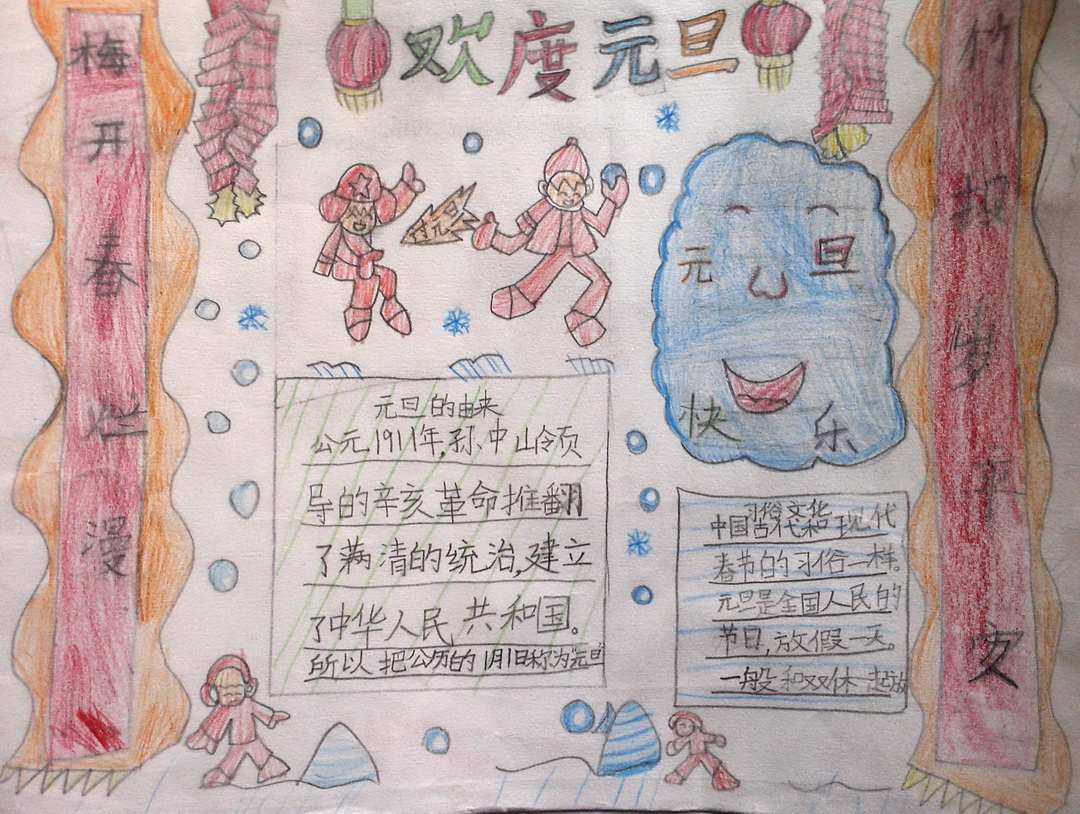 欢度元旦
梅开春烂漫
竹报岁平安
元旦
快乐
元旦的由来
公元1911年,孙中山领
导的辛亥革命推翻
了满清的统治,建立
了中华人民共和国。
所以把公历的1月1日称为"元旦"
习俗文化
中国古代和现代
春节的习俗一样。
元旦是全国人民的
节日,放假一天。
一般和双休一起放